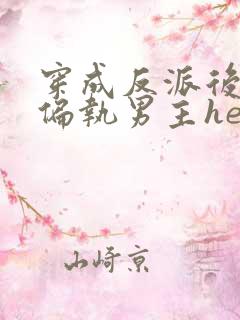 穿成反派後
偏執男主he
山崎京